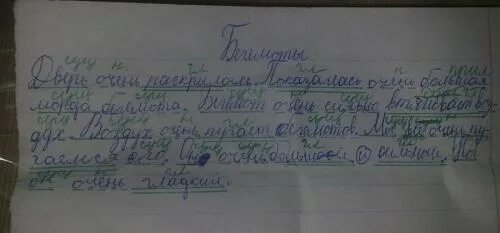 Бегемоты.
Дверь очень раскрылась. Показалась очень большая
морда бегемота. Бегемот очень сильно втягивает воз
дух. Воздух очень пугает бегемотов. Мы все очень пу
гаемся его. Он очень большой и сильный. Но
он очень гладкий.